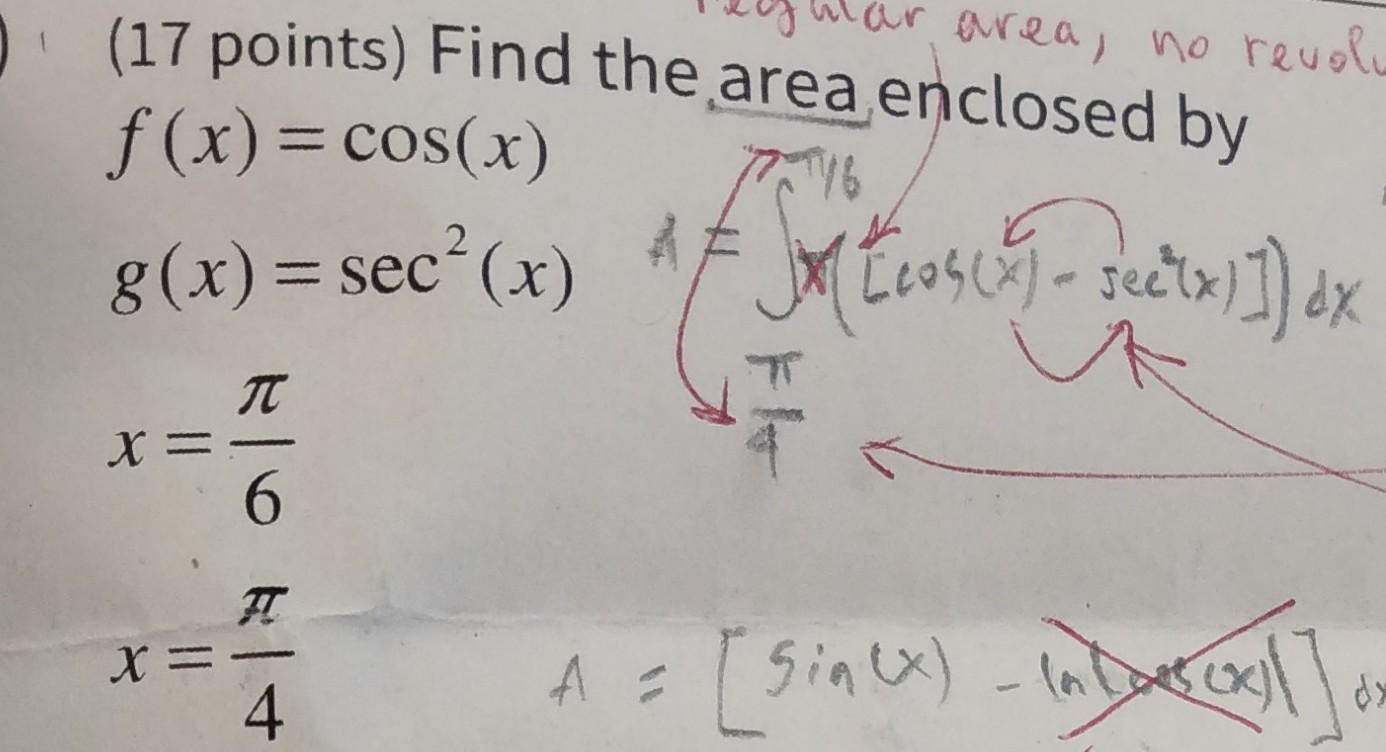 regular area, no revolu
(17 points) Find the area enclosed by
f(x) = cos(x)
g(x) = sec²(x)
A = ∫ π/6 π/4 x([cos(x) - sec²(x)]) dx
x = π/6
x = π/4
A = [sin(x) - ln|cos(x)|] dx